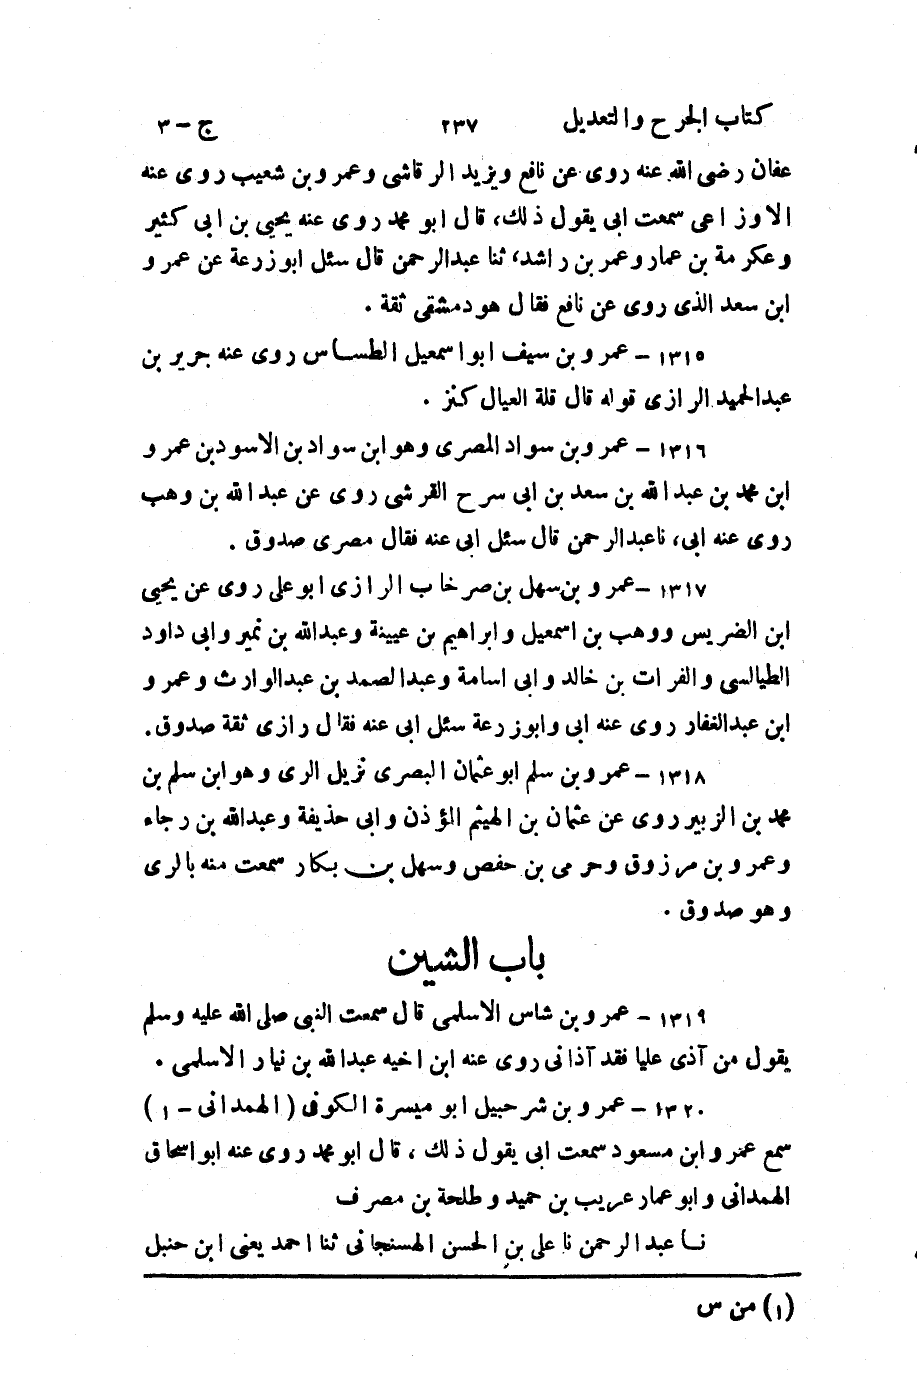 كتاب الجرح والتعديل ٢٣٧ ج - ٣
عفان رضى الله عنه روى عن نافع ويزيد الرقاشى وعمرو بن شعيب روى عنه
الاوزاعى سمعت ابى يقول ذلك، قال ابو محمد روى عنه يحيى بن ابى كثير
وعكرمة بن عمار وعمر بن راشد، ثنا عبدالرحمن قال سئل ابوزرعة عن عمرو
ابن سعد الذى روى عن نافع فقال هو دمشقى ثقة .
١٣١٥ - عمرو بن سيف ابو اسمعيل الطساس روى عنه جرير بن
عبدالحميد الرازى قوله قال قلة العيال كنز .
١٣١٦ - عمرو بن سواد المصرى وهو ابن سواد بن الاسود بن عمرو
ابن محمد بن عبد الله بن سعد بن ابى سرح القرشى روى عن عبد الله بن وهب
روى عنه ابى، نا عبدالرحمن قال سئل ابى عنه فقال مصرى صدوق .
١٣١٧ - عمرو بن سهل بن صرخاب الرازى ابو على روى عن يحيى
ابن الضريس ووهب بن اسمعيل وابراهيم بن عيينة وعبدالله بن نمير وابى داود
الطيالسى والفرات بن خالد وابى اسامة وعبد الصمد بن عبدالوارث وعمرو
ابن عبدالغفار روى عنه ابى وابوزرعة سئل ابى عنه فقال رازى ثقة صدوق.
١٣١٨ - عمرو بن سلم ابو عثمان البصرى نزيل الرى وهو ابن سلم بن
محمد بن الزبير روى عن عثمان بن الهيثم المؤذن وابى حذيفة وعبدالله بن رجاء
وعمرو بن مرزوق وحرمى بن حفص وسهل بن بكار سمعت منه بالرى
وهو صدوق .
باب الشين
١٣١٩ - عمرو بن شاس الاسلمى قال سمعت النبى صلى الله عليه وسلم
يقول من آذى عليا فقد آذانى روى عنه ابن اخيه عبدالله بن نيار الاسلمى .
١٣٢٠ - عمرو بن شرحبيل ابو ميسرة الكوفى (الهمدانى - ١)
سمع عمر وابن مسعود سمعت ابى يقول ذلك، قال ابو محمد روى عنه ابو اسحاق
الهمدانى وابو عمار عريب بن حميد وطلحة بن مصرف
نا عبد الرحمن نا على بن الحسن الهسنجانى ثنا احمد يعنى ابن حنبل
(١) من س